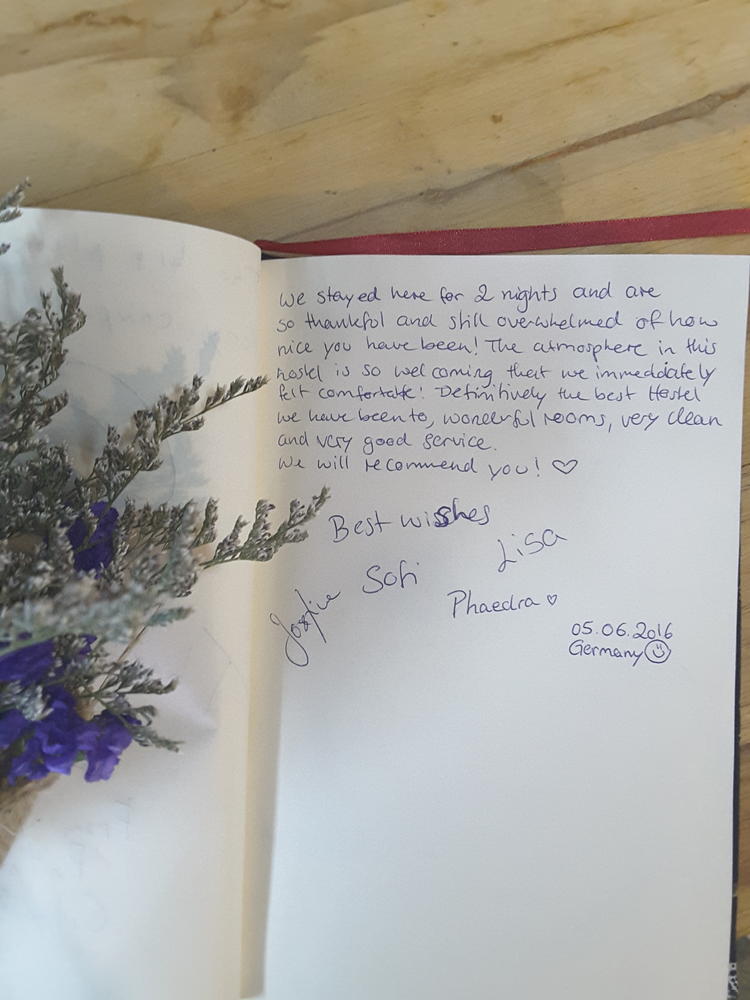 We stayed here for 2 nights and are
so thankful and still overwhelmed of how
nice you have been! The atmosphere in this
hostel is so welcoming that we immediately
felt comfortable! Definitively the best Hostel
we have been to, wonderful rooms, very clean
and very good service.
We will recommend you! ♡
Best wishes
Lisa
Sofi
Phaedra ♡
05.06.2016
Germany ☺